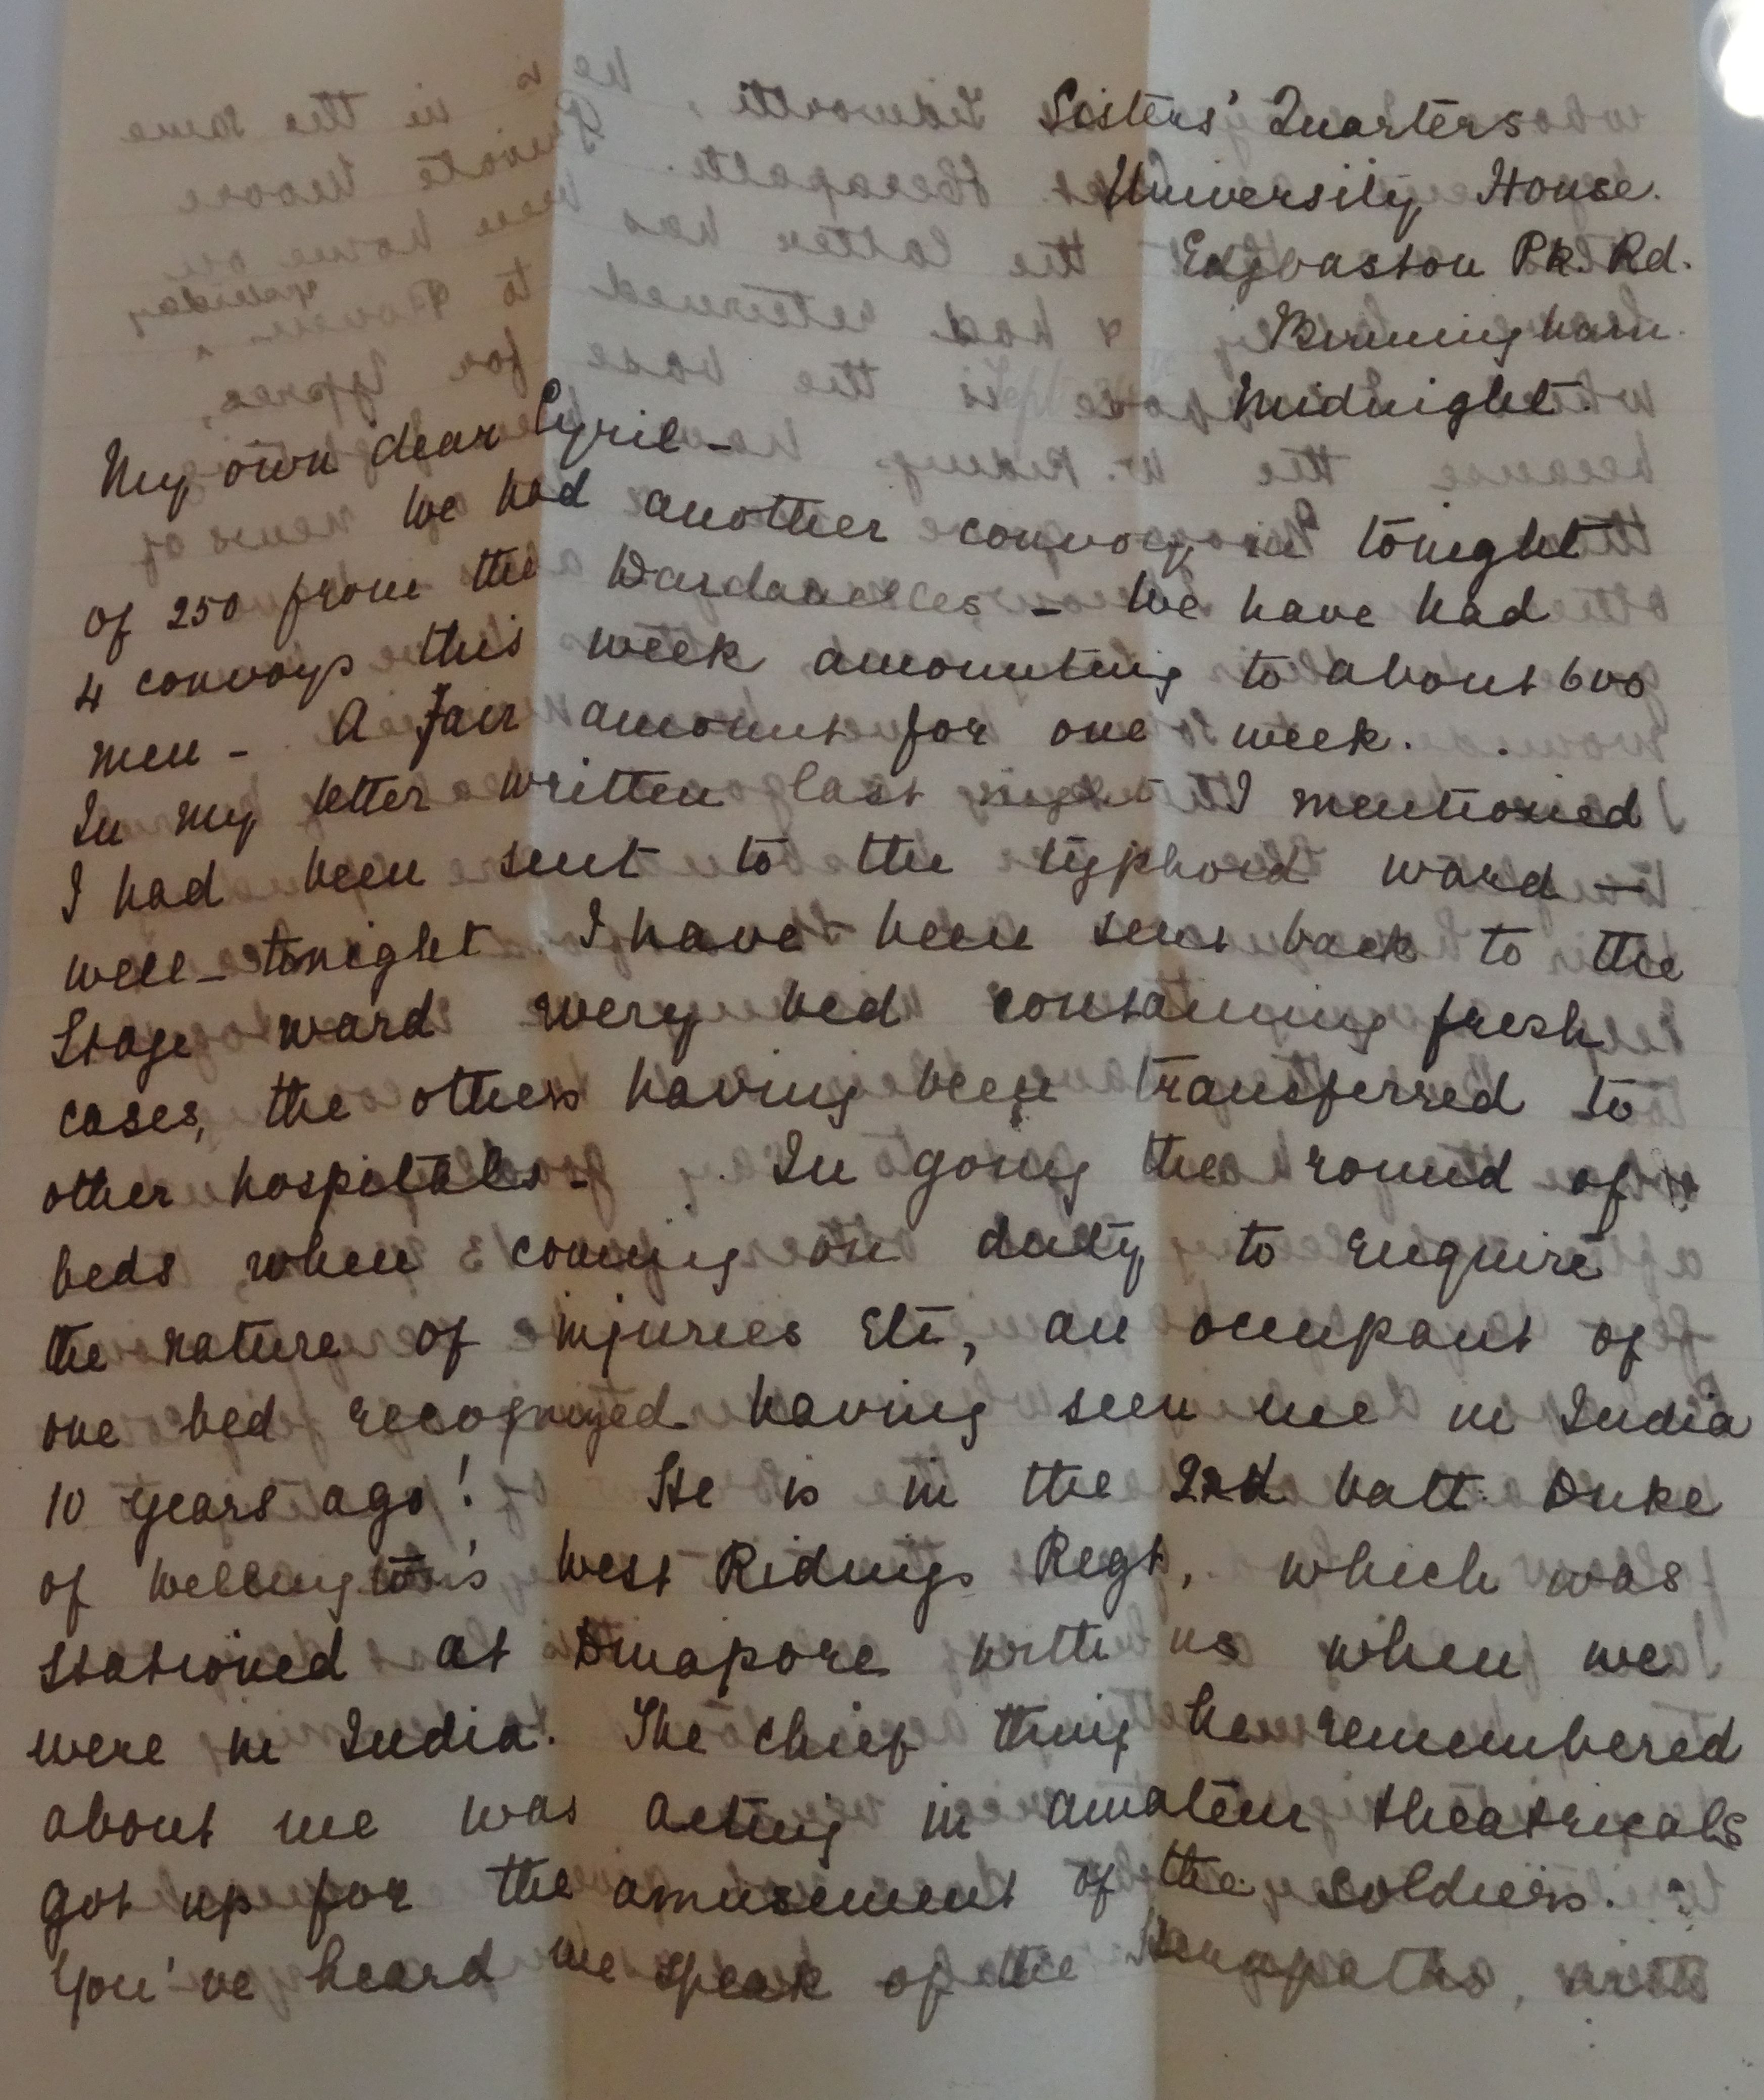 Sisters' Quarters
University House.
Edgbaston Pk. Rd.
Birmingham.
Midnight.
My own dear Cyril -
We had another convoy in tonight
of 250 from the Dardanelles - We have had
4 convoys this week amounting to about 600
men - A fair amount for one week.
In my letter written last night I mentioned
I had been sent to the typhoid ward -
well - tonight I have been sent back to the
Stage ward every bed containing fresh
cases, the others having been transferred to
other hospitals - In going the round of
beds when coming on duty to enquire
the nature of injuries etc, an occupant of
one bed recognized having seen me in India
10 years ago! He is in the 2nd batt. Duke
of Wellington's West Ridings Regt, which was
stationed at Dinapore with us when we
were in India. The chief thing he remembered
about me was acting in amateur theatricals
got up for the amusement of the soldiers.
You've heard me speak of the with